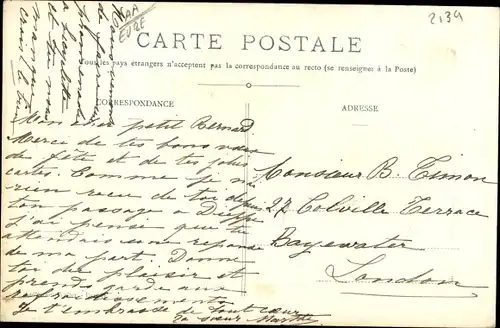 2139
EURE
CARTE POSTALE
Tous les pays étrangers n'acceptent pas la correspondance au recto (se renseigner à la Poste)
CORRESPONDANCE
ADRESSE
Mon cher petit Bernard
Merci de tes bons vœux
de fête et de tes jolies
cartes. Comme je n'ai
rien reçu de toi depuis
ton passage à Dieppe
j'ai pensé que tu
attendais une réponse
de ma part. Donne
toi du plaisir et
prends garde aux
refroidissements
Je t'embrasse de tout cœur
ta sœur Marthe
Monsieur B. Timon
27 Colville Terrace
Bayswater
London
promenade
et tu nous